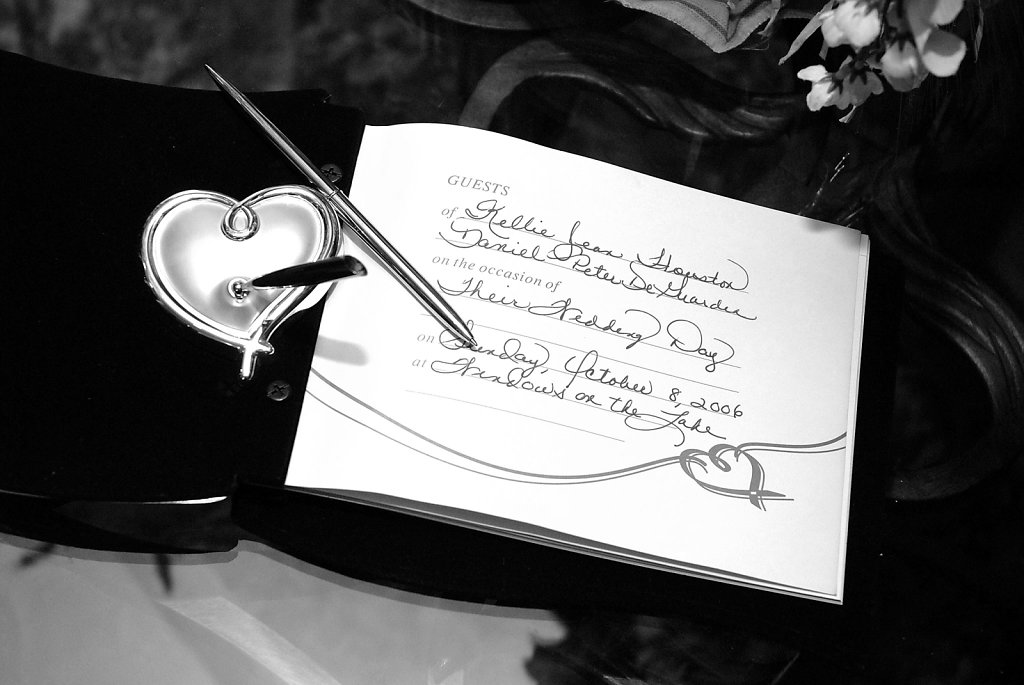 GUESTS
of Kellie Jean Houston
Daniel Peter DeGuardu
on the occasion of
Their Wedding Day
on Sunday, October 8, 2006
at Windows on the Lake